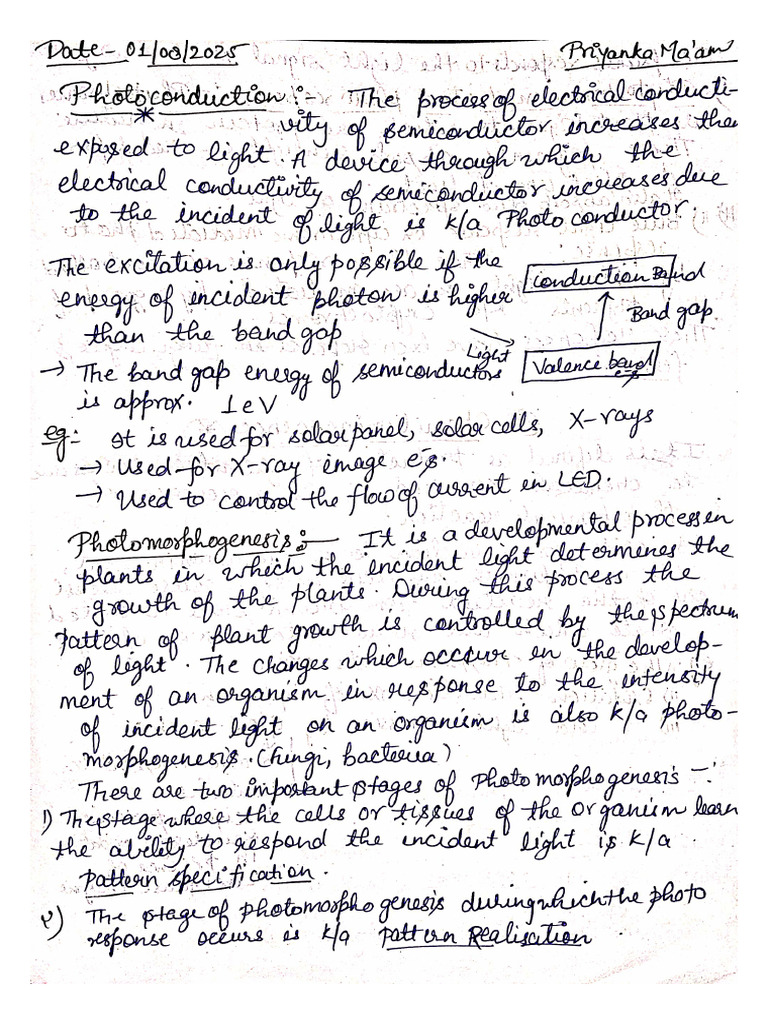 Date - 01/08/2025 Priyanka Ma'am
Photoconduction :- The process of electrical conducti-
vity of semiconductor increases the
exposed to light. A device through which the
electrical conductivity of semiconductor increases due
to the incident of light is k/a Photo conductor.
The excitation is only possible if the
energy of incident photon is higher
than the band gap
conduction Band
Band gap
Light
Valence band
→ The band gap energy of semiconductors
is approx. 1eV
eg:- It is used for solar panel, solar cells, X-rays
→ Used for X-ray image e's.
→ Used to control the flow of current in LED.
Photomorphogenesis :- It is a developmental process in
plants in which the incident light determines the
growth of the plants. During this process the
pattern of plant growth is controlled by the spectrum
of light. The changes which occur in the develop-
ment of an organism in response to the intensity
of incident light on an organism is also k/a photo-
morphogenesis. (fungi, bacteria)
There are two important stages of Photomorphogenesis -:
1) The stage where the cells or tissues of the organism learn
the ability to respond the incident light is k/a.
Pattern specification.
२) The stage of photomorphogenesis during which the photo
response occurs is k/a Pattern Realisation